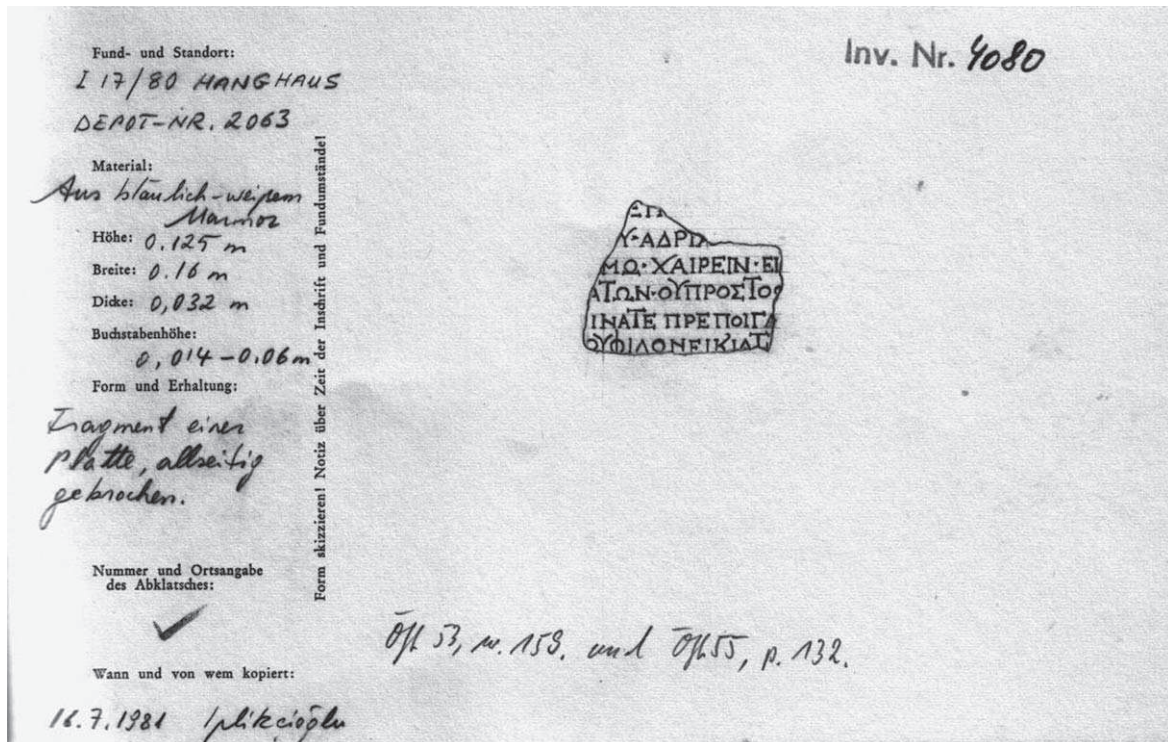 Fund- und Standort:
I 17/80 HANGHAUS
DEPOT-NR. 2063
Material:
Aus bläulich-weißem
Marmor
Höhe: 0.125 m
Breite: 0.16 m
Dicke: 0,032 m
Buchstabenhöhe:
0,014-0.06 m
Form und Erhaltung:
Fragment einer
Platte, allseitig
gebrochen.
Nummer und Ortsangabe
des Abklatsches:
Wann und von wem kopiert:
16.7.1981 Iplikcioglu
Form skizzieren! Notiz über Zeit der Inschrift und Fundumstände!
Inv. Nr. 4080
ΕΠ
Υ·ΑΔΡΙ
ΜΩ·ΧΑΙΡΕΙΝ·ΕΙ
ΑΤΩΝ·ΟΥΠΡΟΣΤΟ
ΙΝΑΤΕ ΠΡΕΠΟΙΓΑ
ΟΥΦΙΛΟΝΕΙΚΙΑΤ
ÖJh 53, nr. 159. und ÖJh 55, p. 132.